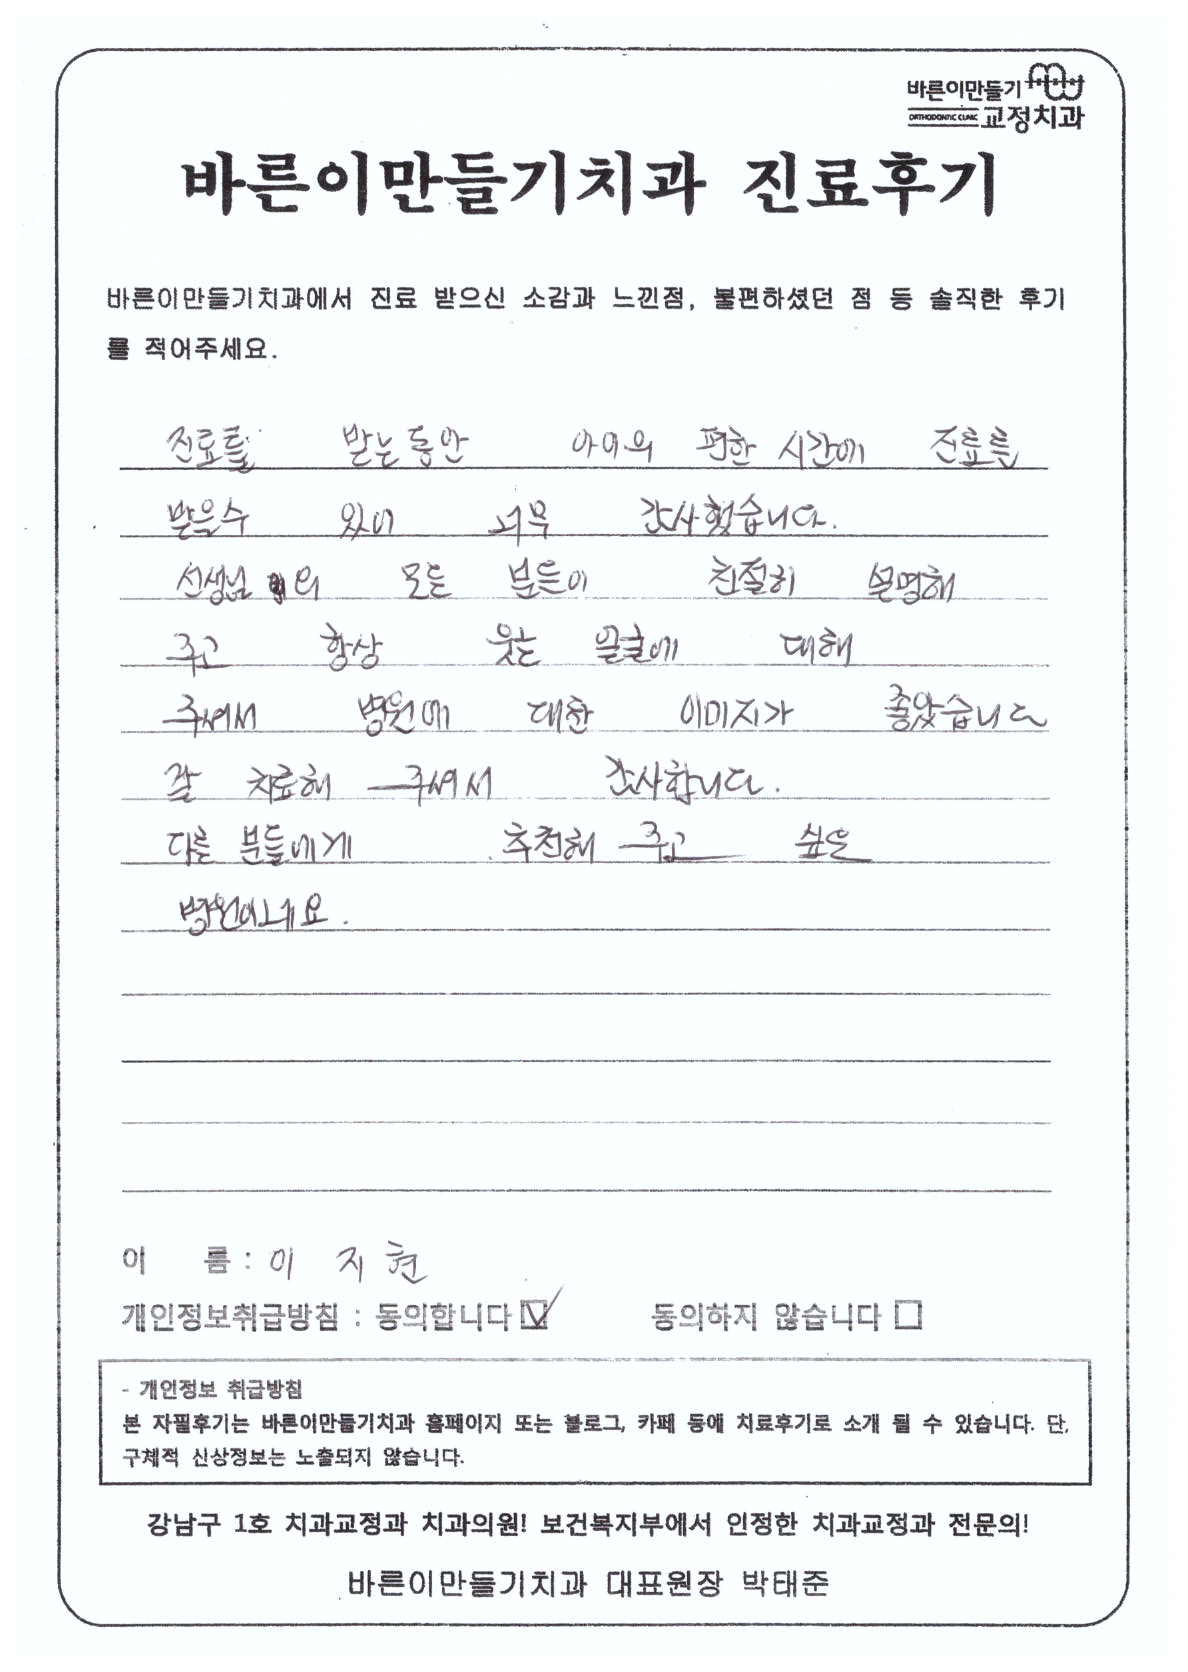 바른이만들기
ORTHODONTIC CLINIC 교정치과
바른이만들기치과 진료후기
바른이만들기치과에서 진료 받으신 소감과 느낀점, 불편하셨던 점 등 솔직한 후기
를 적어주세요.
진료를 받는동안 아이의 편한 시간에 진료를
받을수 있어 너무 감사했습니다.
선생님 외 모든 분들이 친절히 설명해
주고 항상 웃는 얼굴에 대해
주셔서 병원에 대한 이미지가 좋았습니다
잘 치료해 주셔서 감사합니다.
다른 분들에게 추천해 주고 싶은
병원이네요.
이 름 : 이 지 현
개인정보취급방침 : 동의합니다 동의하지 않습니다
- 개인정보 취급방침
본 자필후기는 바른이만들기치과 홈페이지 또는 블로그, 카페 등에 치료후기로 소개 될 수 있습니다. 단,
구체적 신상정보는 노출되지 않습니다.
강남구 1호 치과교정과 치과의원! 보건복지부에서 인정한 치과교정과 전문의!
바른이만들기치과 대표원장 박태준